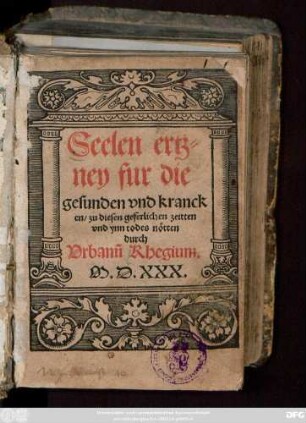 Seelen ertz⸗
ney fur die
gesunden vnd kranck
en/ zu diesen geferlichen zeitten
vnd ynn todes nötten
durch
Vrbanū Rhegium.
M. D. XXX.